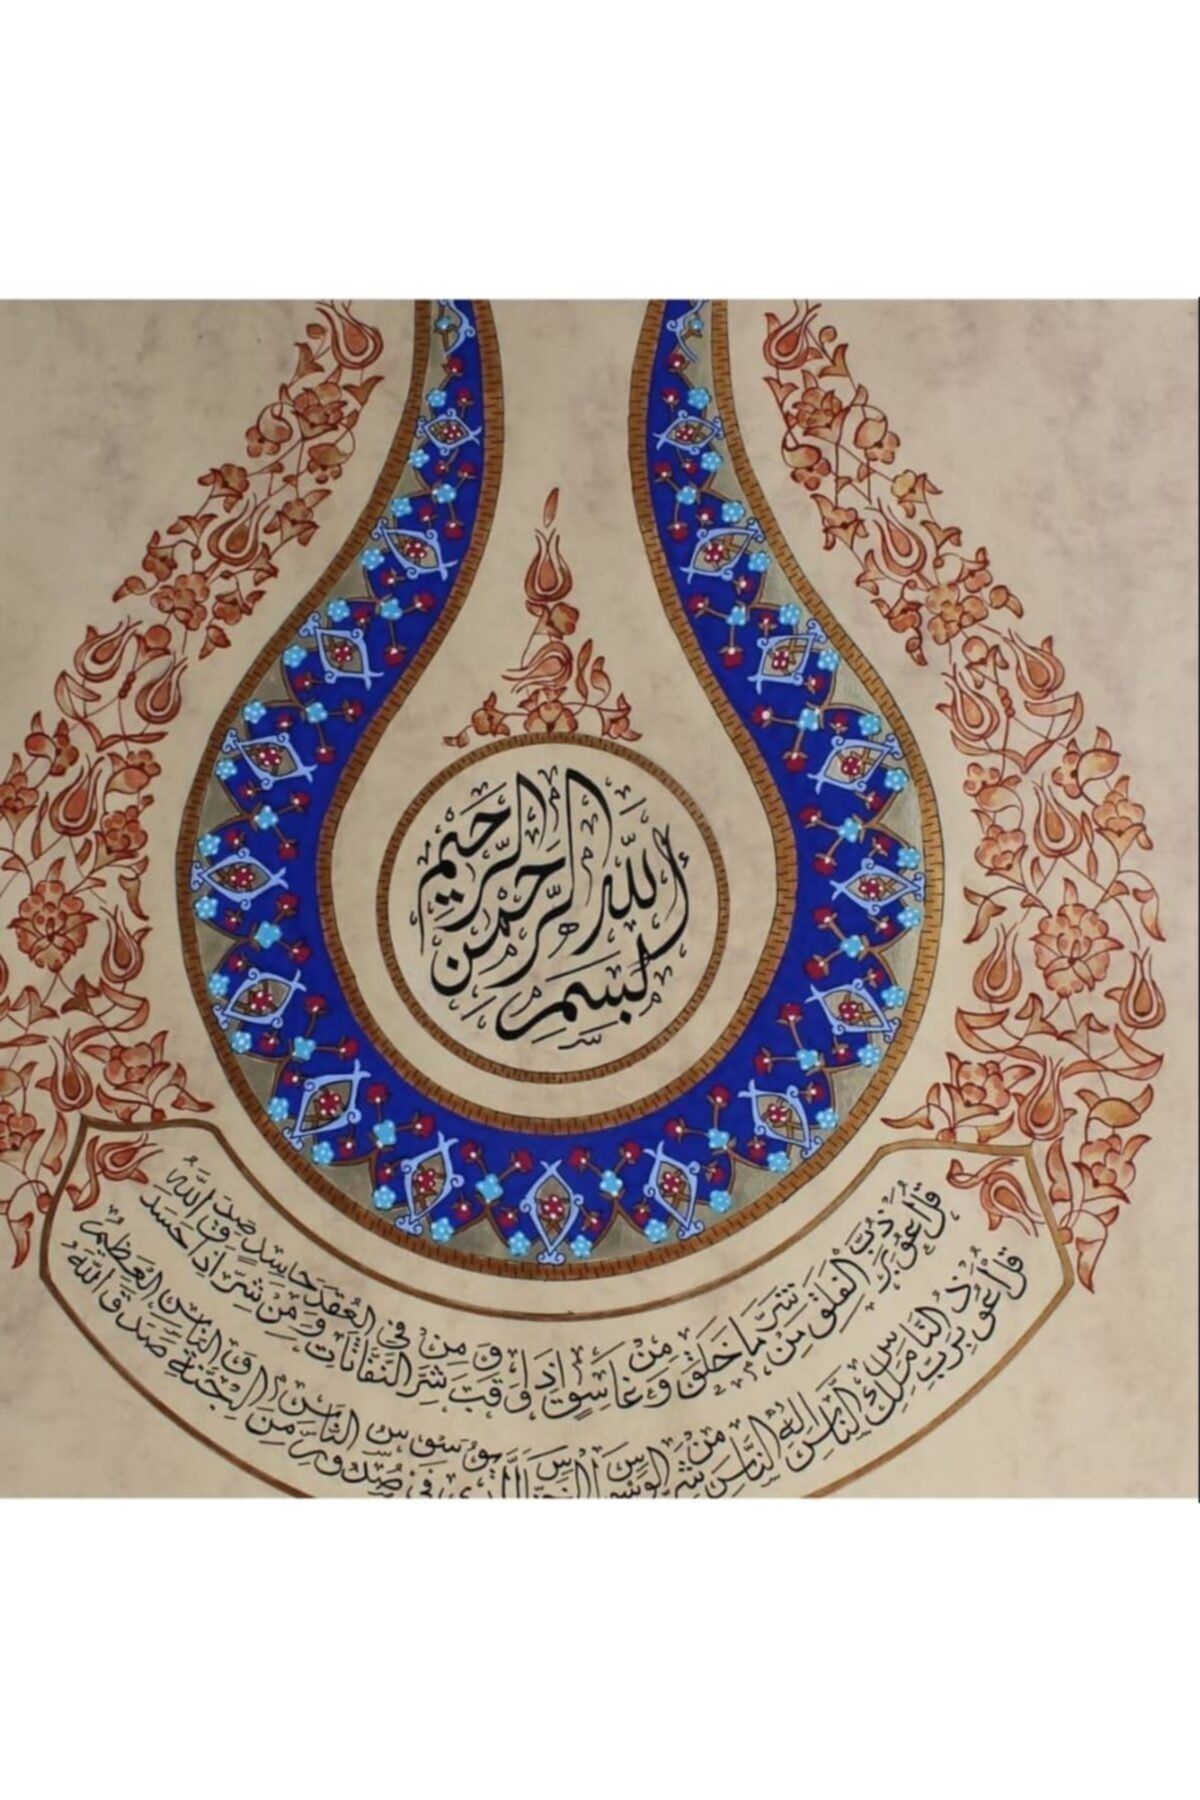 بِسْمِ اللّٰهِ الرَّحْمٰنِ الرَّحِيمِ
قُلْ أَعُوذُ بِرَبِّ الْفَلَقِ مِنْ شَرِّ مَا خَلَقَ وَمِنْ شَرِّ غَاسِقٍ إِذَا وَقَبَ وَمِنْ شَرِّ النَّفَّاثَاتِ فِي الْعُقَدِ وَمِنْ شَرِّ حَاسِدٍ إِذَا حَسَدَ صَدَقَ اللّٰهُ
قُلْ أَعُوذُ بِرَبِّ النَّاسِ مَلِكِ النَّاسِ إِلٰهِ النَّاسِ مِنْ شَرِّ الْوَسْوَاسِ الْخَنَّاسِ الَّذِي يُوَسْوِسُ فِي صُدُورِ النَّاسِ مِنَ الْجِنَّةِ وَ النَّاسِ صَدَقَ اللّٰهُ الْعَظِيمُ